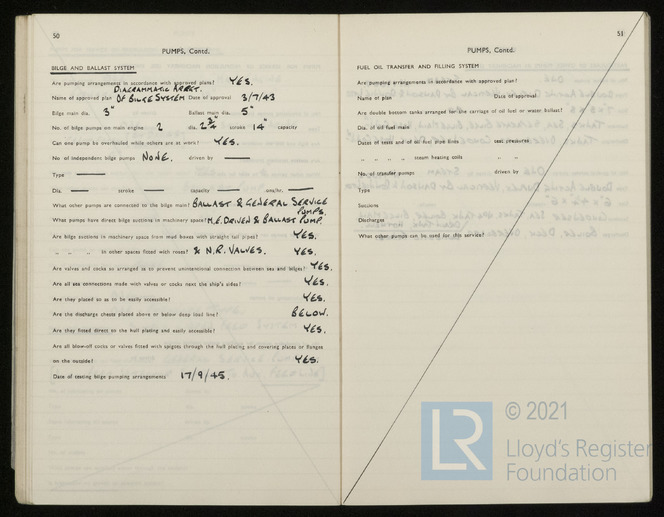 50
PUMPS, Contd.
BILGE AND BALLAST SYSTEM
Are pumping arrangements in accordance with approved plans? YES.
DIAGRAMMATIC ARRGT.
Name of approved plan OF BILGE SYSTEM Date of approval 3/7/43
Bilge main dia. 3" Ballast main dia. 5"
No. of bilge pumps on main engine 2 dia. 2 3/4" stroke 14" capacity
Can one pump be overhauled while others are at work? YES.
No. of independent bilge pumps NONE. driven by —
Type —
Dia. — stroke — capacity — tons/hr. —
What other pumps are connected to the bilge main? BALLAST & GENERAL SERVICE
PUMPS.
What pumps have direct bilge suctions in machinery space? M.E. DRIVEN & BALLAST PUMP.
Are bilge suctions in machinery space from mud boxes with straight tail pipes? YES.
„ „ „ in other spaces fitted with roses? & N.R. VALVES. YES.
Are valves and cocks so arranged as to prevent unintentional connection between sea and bilges? YES.
Are all sea connections made with valves or cocks next the ship's sides? YES.
Are they placed so as to be easily accessible? YES.
Are the discharge chests placed above or below deep load line? BELOW.
Are they fitted direct to the hull plating and easily accessible? YES.
Are all blow-off cocks or valves fitted with spigots through the hull plating and covering plates or flanges
on the outside? YES.
Date of testing bilge pumping arrangements 17/9/45.
51
PUMPS, Contd.
FUEL OIL TRANSFER AND FILLING SYSTEM
Are pumping arrangements in accordance with approved plan?
Name of plan Date of approval
Are double bottom tanks arranged for the carriage of oil fuel or water ballast?
Dia. of oil fuel main
Dates of tests and of oil fuel pipe lines test pressures
„ „ „ steam heating coils „ „
No. of transfer pumps driven by
Type
Suctions
Discharges
What other pumps can be used for this service?
LR
© 2021
Lloyd's Register
Foundation